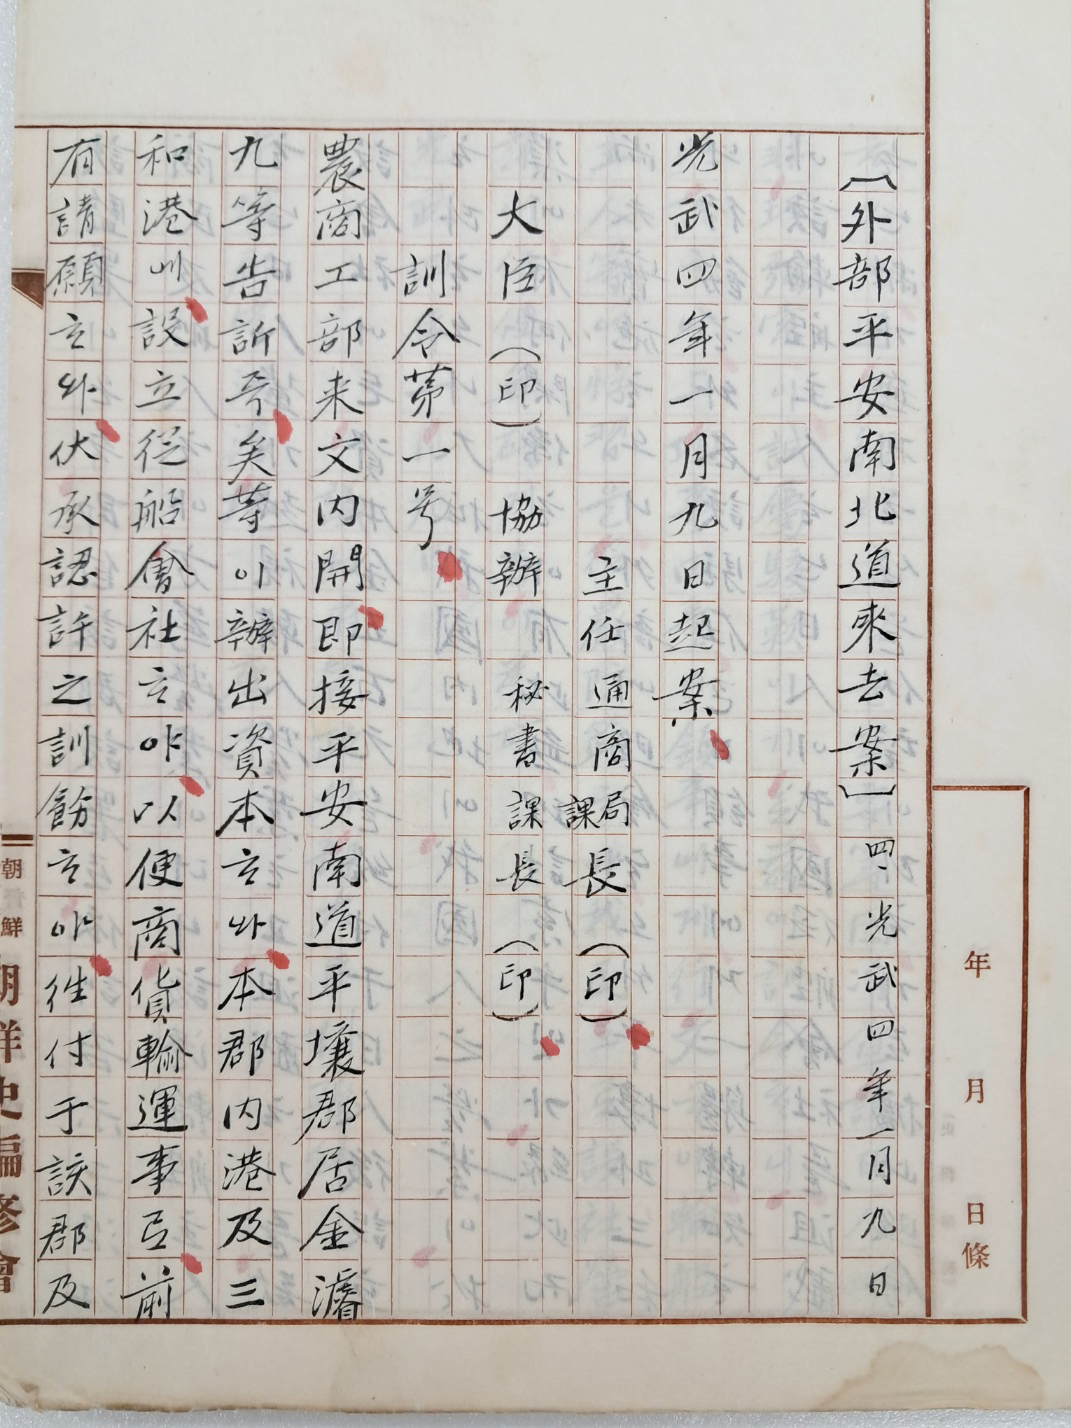 年 月 日條
【外部平安南北道來去案】四、光武四年一月九日
光武四年一月九日起案
主任 通商局課長 (印)
大臣 (印) 協辦 秘書課長 (印)
訓令第一号
農商工部来文内開即接平安南道平壤郡居金濬
九等告訴亏矣等이辦出資本立外本郡内港及三
和港川設立従船會社立야以便商貨輸運事로前
有請願立外伏承認許之訓飭立아徃付于該郡及
朝鮮
朝鮮史編修會